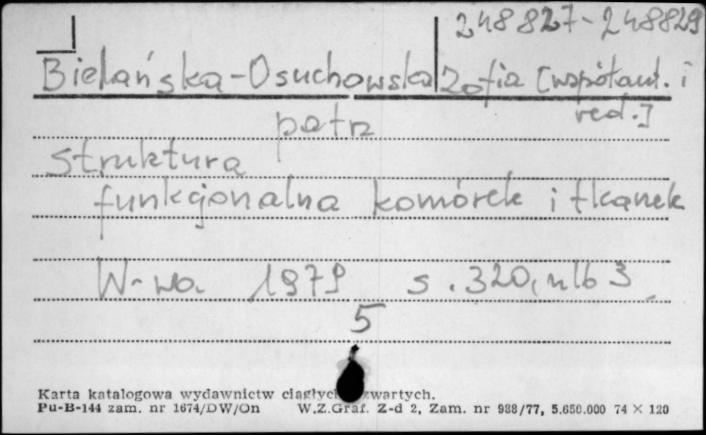 248827-248829
Bielańska-Osuchowska Zofia [współaut. i
red.]
patrz
Struktura
funkcjonalna komórek i tkanek
W-wa 1979 s. 320, nlb 3
5
Karta katalogowa wydawnictw ciągłych zwartych.
Pu-B-144 zam. nr 1674/DW/On W.Z.Graf. Z-d 2, Zam. nr 988/77, 5.650.000 74 × 120